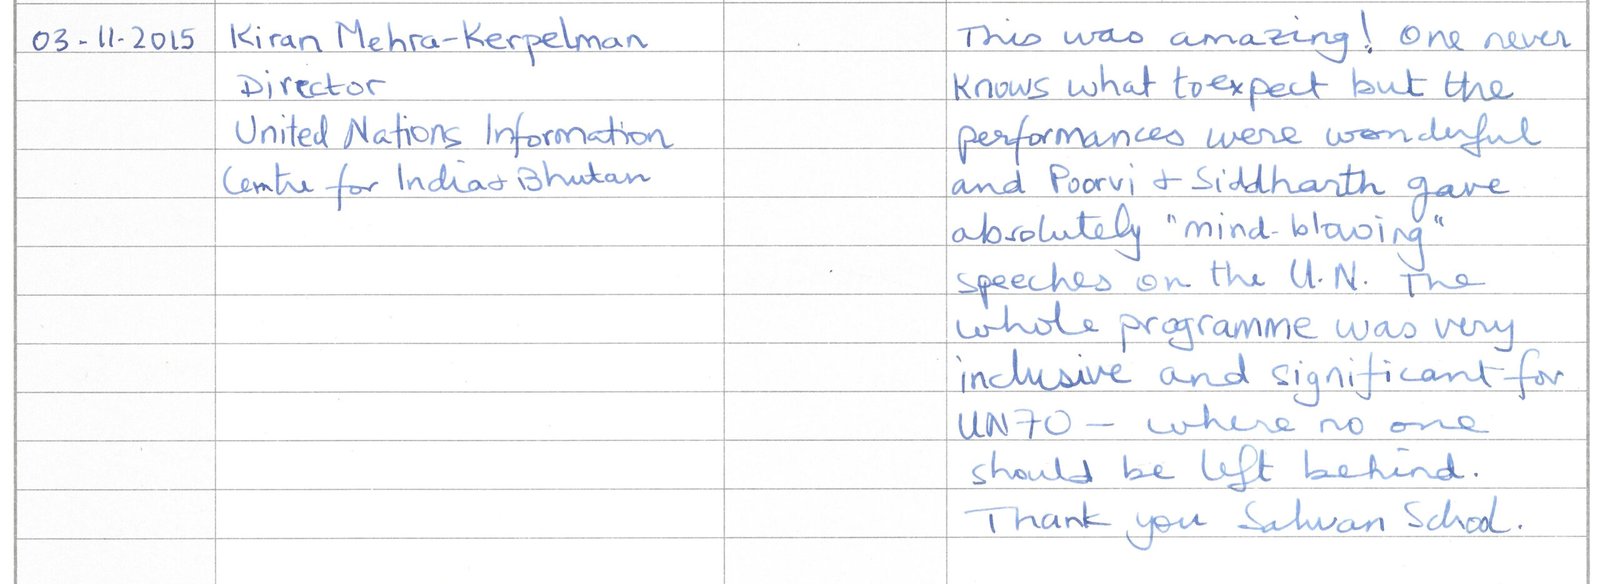 03-11-2015
Kiran Mehra-Kerpelman
Director
United Nations Information
Centre for India & Bhutan
This was amazing! One never
knows what to expect but the
performances were wonderful
and Poorvi & Siddharth gave
absolutely "mind-blowing"
speeches on the U.N. The
whole programme was very
inclusive and significant for
UN70 – where no one
should be left behind.
Thank you Salwan School.